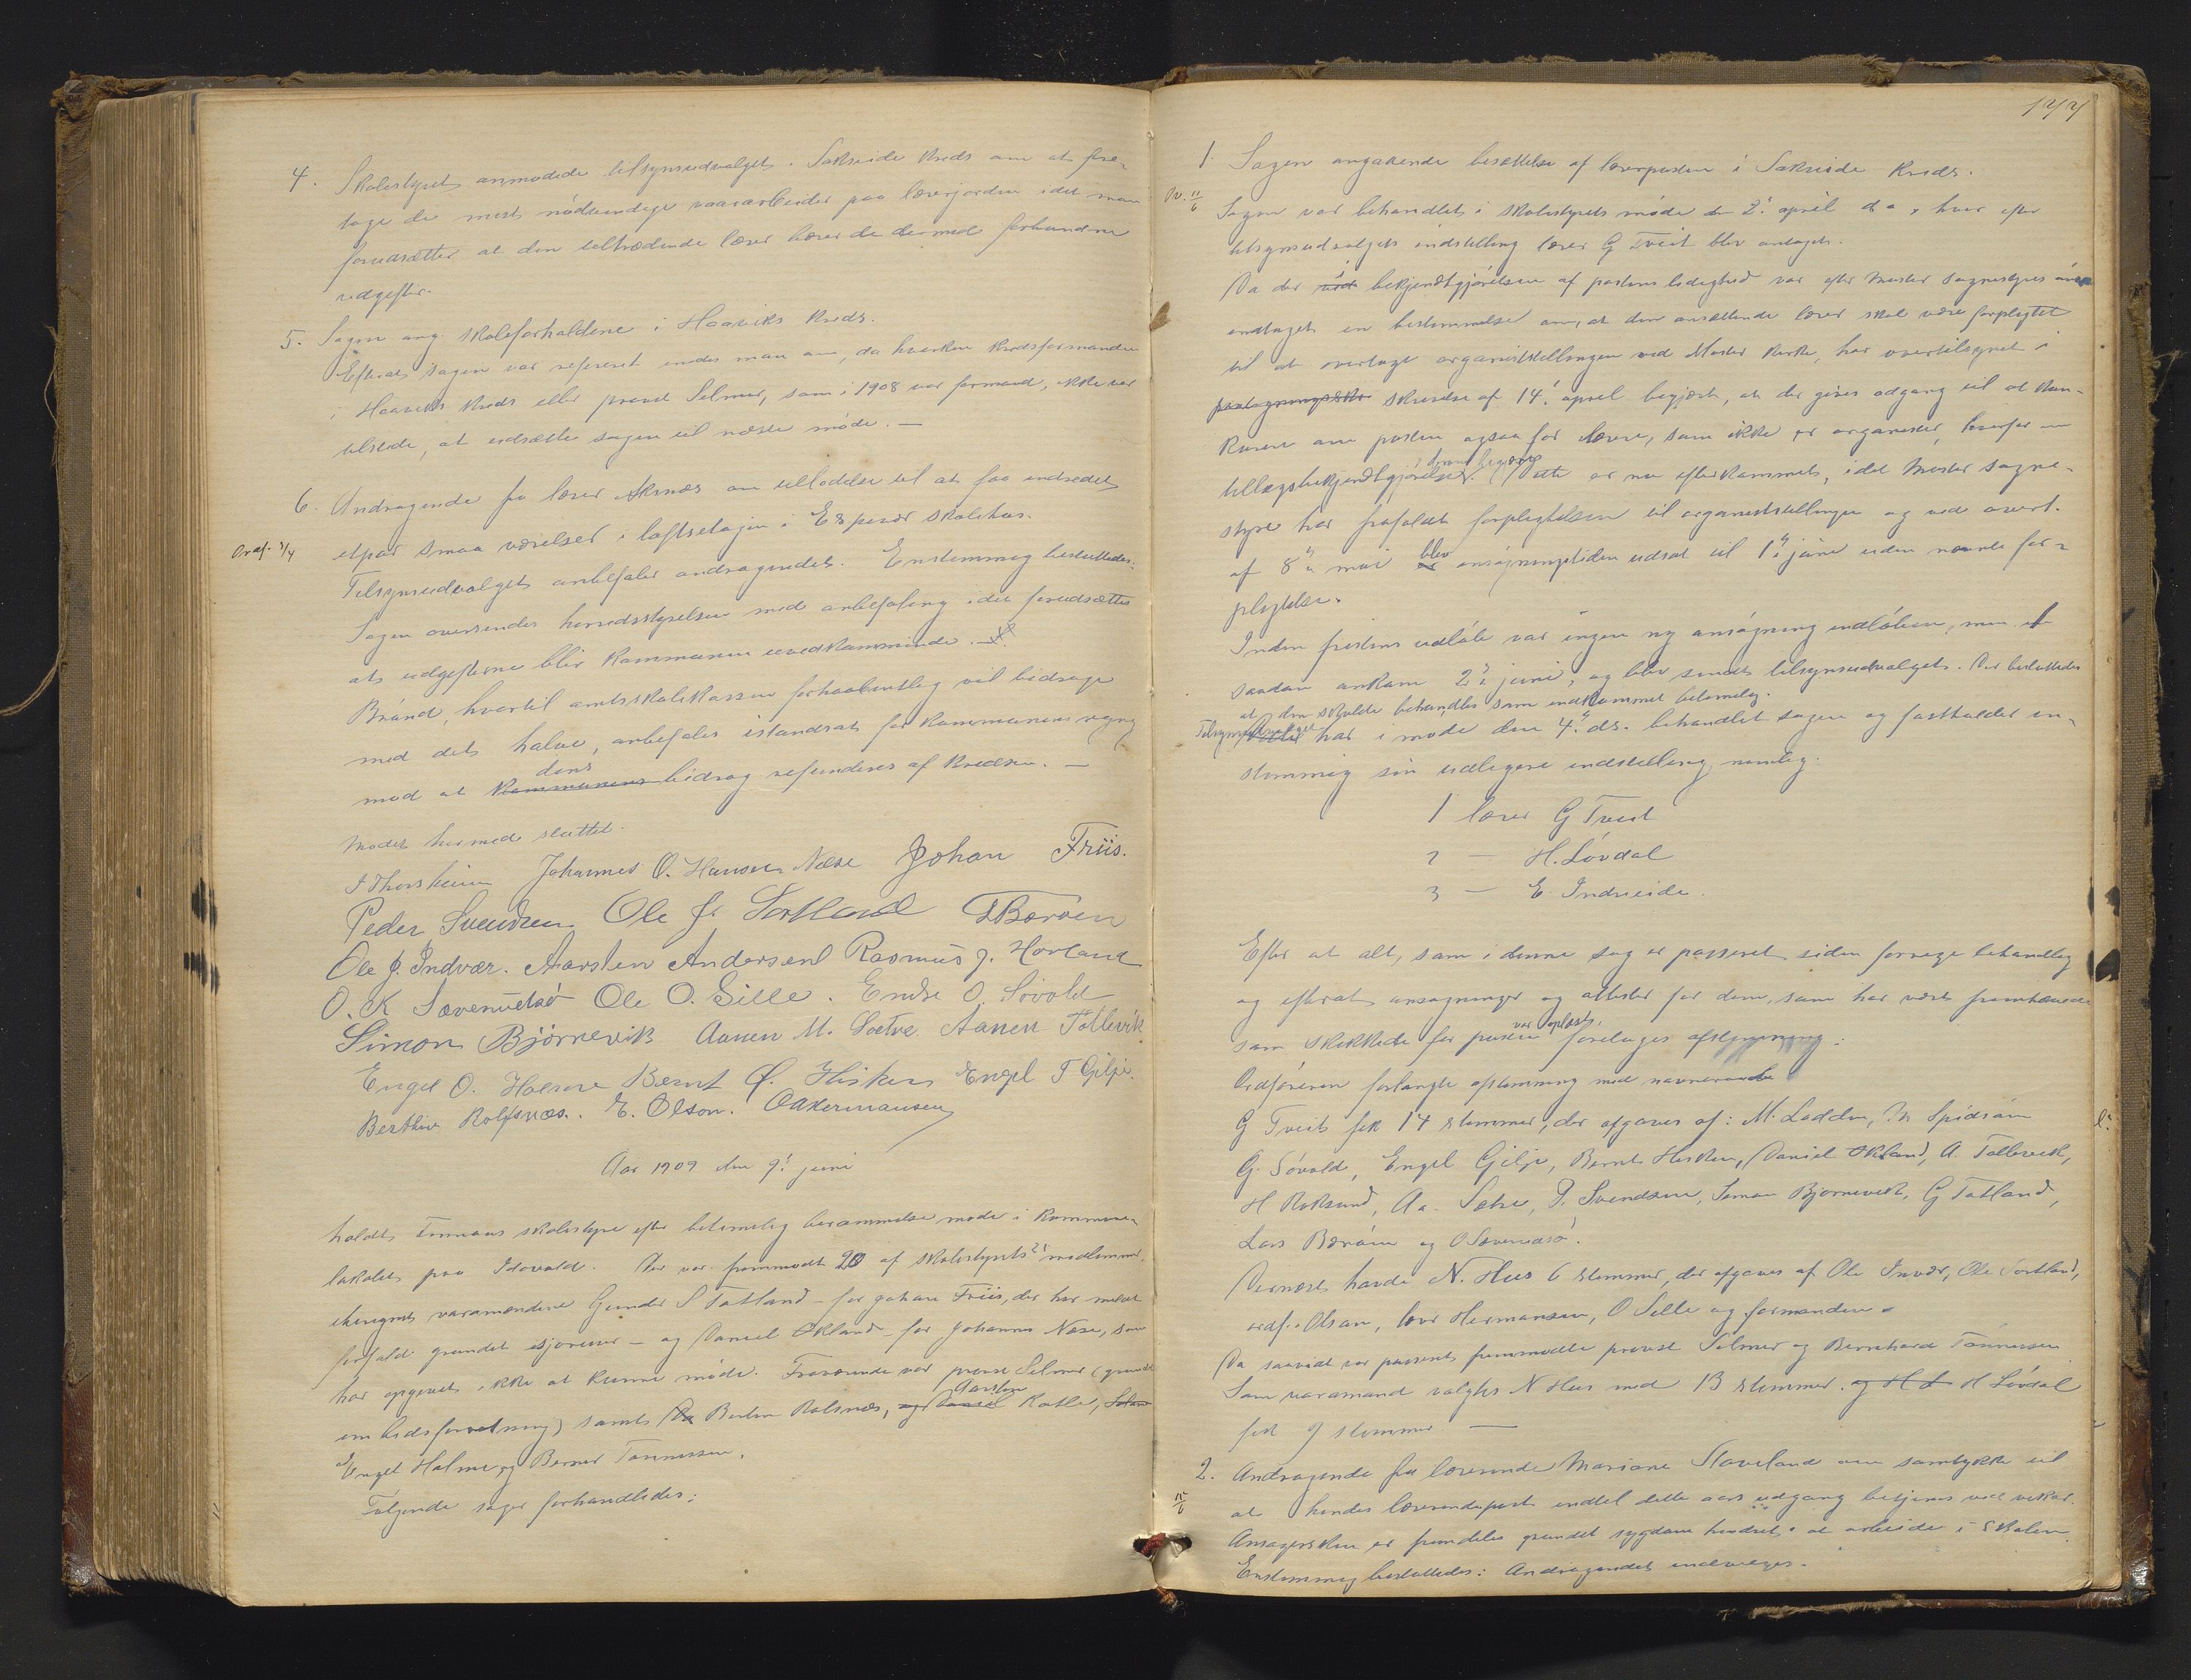 4. Skolestyret anmodede tilsynsudvalget i Sakseide kreds om at fore-
tage de mest nødvendige vaararbeider paa lærerjorden idet man
forudsætter at den tiltrædende lærer bærer de dermed forbundne
udgifter.
5. Sagen ang. skoleforholdene i Haaviks kreds.
Efterat sagen var refereret endes man om, da hverken kredsformanden
i Haaviks kreds eller provst Selmer, som i 1908 var formand, ikke var
tilstede, at udsætte sagen til næste møde. —
6. Andragende fra lærer Aknæs om tilladelse til at faa indredet
Oraf. 3/4 etpar smaa værelser i loftsetagen i Espevær skolehus.
Tilsynsudvalget anbefaler andragendet. Enstemmig besluttedes:
Sagen oversendes herredsstyrelsen med anbefaling idet forudsættes
at udgifterne blir kommunen uvedkommende. —
Brønd, hvortil amtsskolekassen forhaabentlig vil bidrage
med det halve, anbefales istandsat for kommunens regning
mod at kommunens dens bidrag refunderes af kredsen. —
Mødet hermed sluttet.
J Thorsheim Johannes O. Hanson Næse Johan Friis.
Peder Svendsen Ole J. Sortland L Børøen
Ole J. Indvær. Aarsten Andersen Rasmus J. Hovland
O. K Sævereidsø Ole O. Sille. Endre O. Søvold
Simon Bjørnevik Aanen M. Sætre. Aanen Tollevik
Engel O. Holme Bernt Ø. Hisken Engel T Gilje.
Berthin Rolfsnæs. E. Olson. O Akermansen
Aar 1909 den 9: juni
holdt Finnaas skolestyre efter betimelig berammelse møde i kommune-
lokalet paa Idavold. Der var fremmødt 20 af skolestyrets 21 medlemmer
iberegnet varamændene Gunder S Totland for Johan Friis, der har meldt
forfald grundet sjøreiser — og Daniel Økland for Johannes Næse, som
har opgivet ikke at kunne møde. Fraværende var provst Selmer (grundet
embedsforretning) samt Berthin Rolfsnæs, og Aarsten Kalle,
Engel Holme og Berner Tønnessen.
Følgende sager forhandledes:
177
1. Sagen angaaende besættelse af lærerposten i Sakseide kreds.
Sagen var behandlet i skolestyrets møde den 2: april d a, hvor efter
tilsynsudvalgets indstilling lærer G Tveit blev antaget.
Da der ved i bekjendtgjørelsen af postens ledighed var efter Moster sognestyres ønske
indtaget en bestemmelse om, at den ansættende lærer skal være forpligtet
til at overtage organiststillingen ved Moster kirke, har overtilsynet i
skrivelse af 14: april begjært, at der gives adgang til at kon-
kurere om posten ogsaa for lærere, som ikke er organister, hvorfor en
tillægsbekjendtgjørelse. Dette er nu efterkommet, idet Moster sogne-
styre har frafaldt forpligtelsen til organiststillingen og ved avert.
af 8de mai er blev ansøgningstiden udsat til 1ste juni uden nævnte for-
pligtelse.
Inden fristens udløb var ingen ny ansøgning indløben, men en
saadan ankom 2den juni, og blev sendt tilsynsudvalget. Der besluttedes
at den skulde behandles som indkommet betimelig.
Tilsynsudvalget har i møde den 4: ds. behandlet sagen og fastholdet en-
stemmig sin tidligere indstilling nemlig:
1 lærer G Tveit
2 — H. Løvdal
3 — E. Indreeide.
Efter at alt, som i denne sag er passeret siden forrige behandling
og efterat ansøgninger og attester for dem, som har været fremhævede
som skikkede for posten var oplæst, foretages afstemning:
Ordføreren forlangte afstemning med navneraab.
G Tveit fik 14 stemmer, der afgaves af: M. Lodden, M Spidsøen
G. Søvold, Engel Gilje, Bernt Hisken, Daniel Økland, A. Tollevik,
H Roksund, Aa. Sætre, P. Svendsen, Simon Bjørnevik, G Totland,
Lars Børøen og O Sævereidsø.
Dernæst havde N. Hus 6 stemmer, der afgaves af Ole Indvær, Ole Sortland,
ordf. Olson, lærer Hermansen, O Sille og formanden.
Da saavidt var passeret fremmødte provst Selmer og Bernhard Tønnessen
Som varamand valgtes N Hus med 13 stemmer. og H L H Løvdal
fik 9 stemmer. —
2. Andragende fra lærerinde Mariane Staveland om samtykke til
at hendes lærerindepost indtil dette aars udgang betjenes ved vikar.
Ansøgersken er fremdeles grundet sygdom hindret i at arbeide i skolen.
Enstemmig besluttedes: Andragendet indvilges.